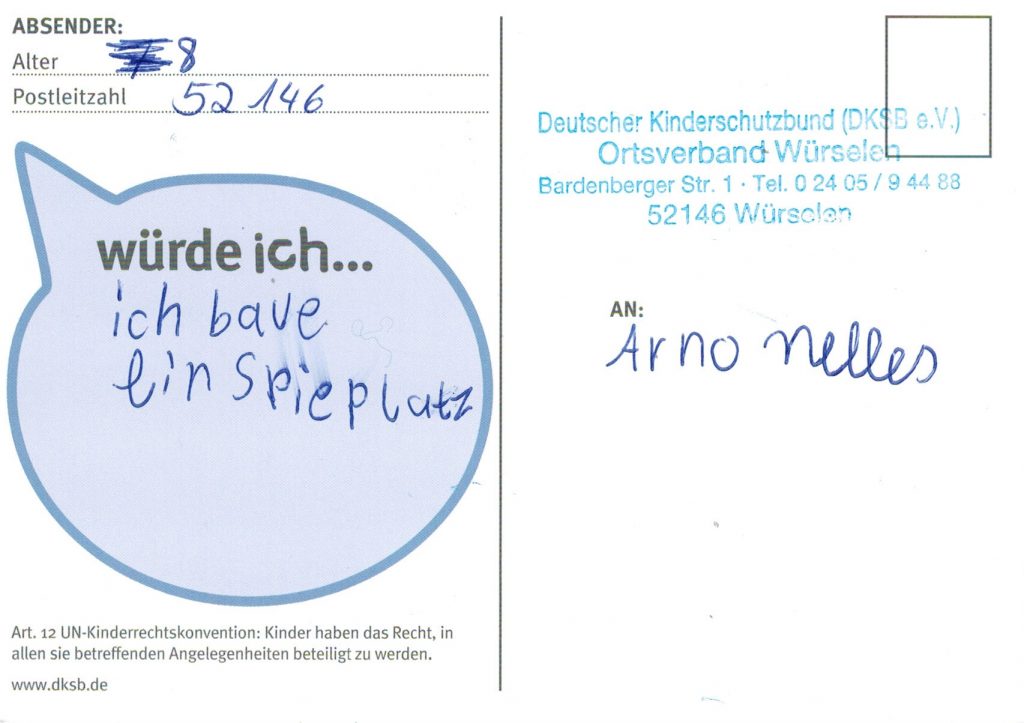 ABSENDER:
Alter 8
Postleitzahl 52146
würde ich...
ich baue
ein Spieplatz
Art. 12 UN-Kinderrechtskonvention: Kinder haben das Recht, in
allen sie betreffenden Angelegenheiten beteiligt zu werden.
www.dksb.de
Deutscher Kinderschutzbund (DKSB e.V.)
Ortsverband Würselen
Bardenberger Str. 1 · Tel. 0 24 05 / 9 44 88
52146 Würselen
AN:
Arno Nelles